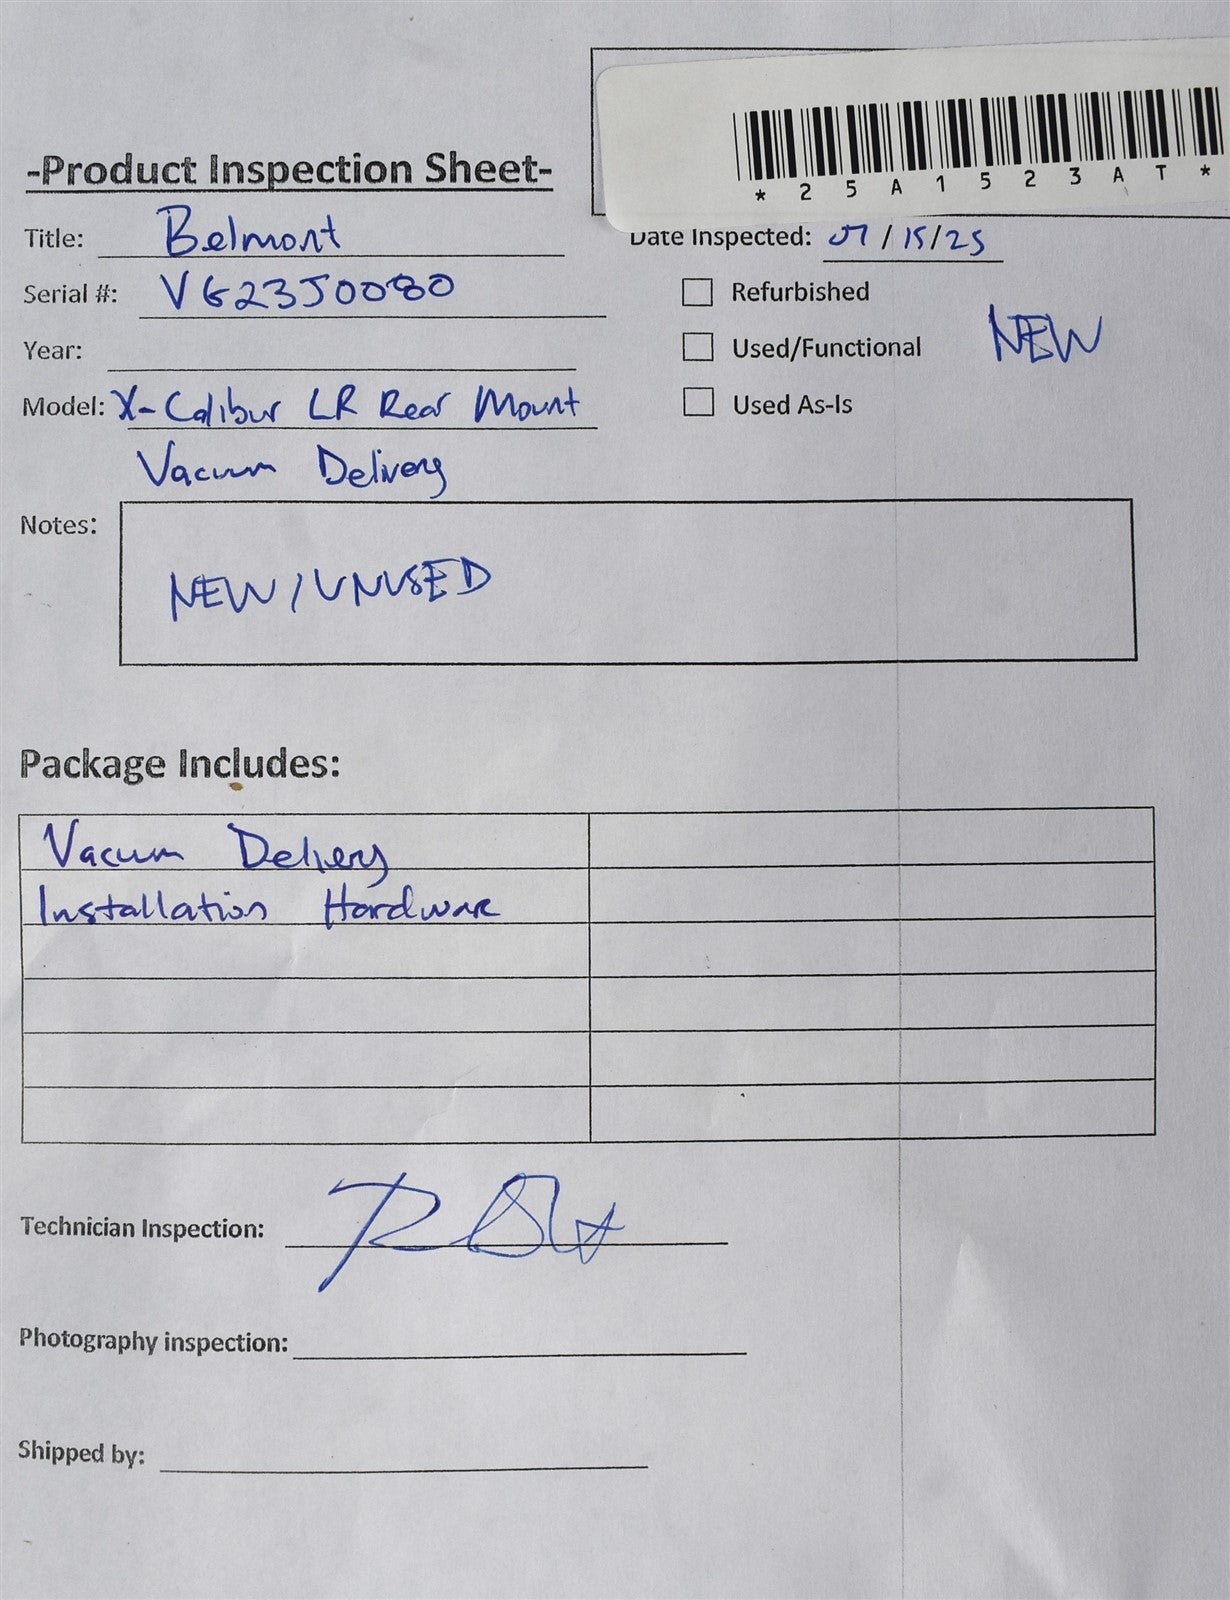 *25A1523AT*
-Product Inspection Sheet-
Title: Belmont
Date Inspected: 07/15/25
Serial #: VG23J0080
Refurbished
Year:
Used/Functional
NEW
Model: X-Calibur LR Rear Mount
Used As-Is
Vacuum Delivery
Notes:
NEW/UNUSED
Package Includes:
Vacuum Delivery
Installation Hardware
Technician Inspection:
Photography inspection:
Shipped by: